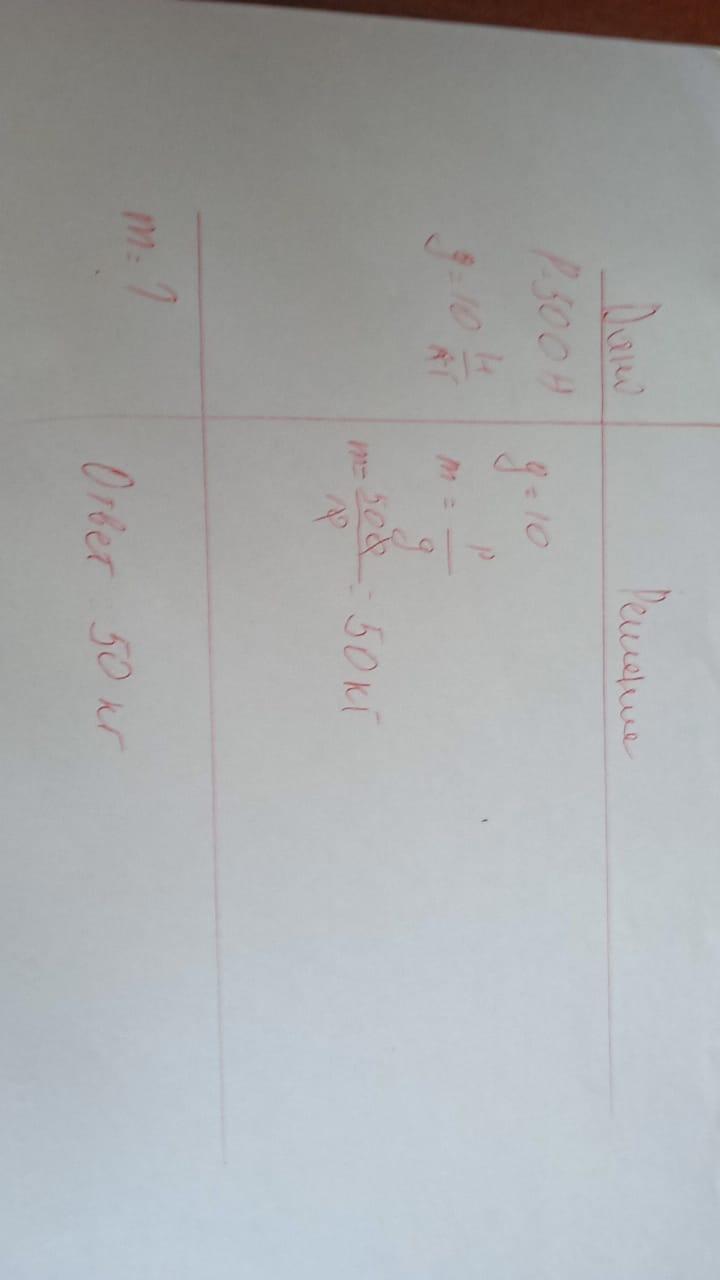 Дано
P=500 Н
g=10 Н/кг
m=?
Решение
g=10
m = P/g
m= 500/10 = 50 кг
Ответ: 50 кг